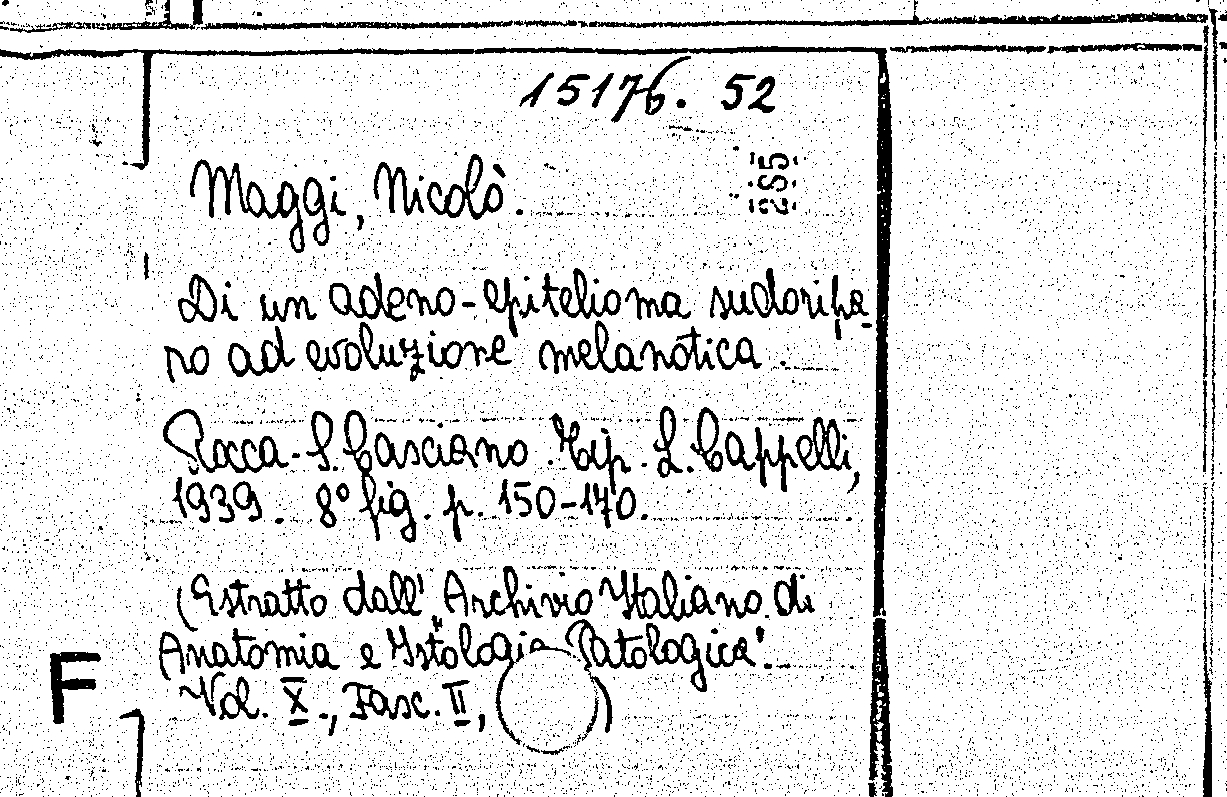 15176. 52
265
Maggi, Nicolò.
Di un adeno-epitelioma sudoripa-
ro ad evoluzione melanotica.
Rocca-S. Casciano. Tip. L. Cappelli,
1939. 8° fig. p. 150-170.
(Estratto dall'„Archivio Italiano di
Anatomia e Istologia Patologica".
Vol. X., Fasc. II, )
F